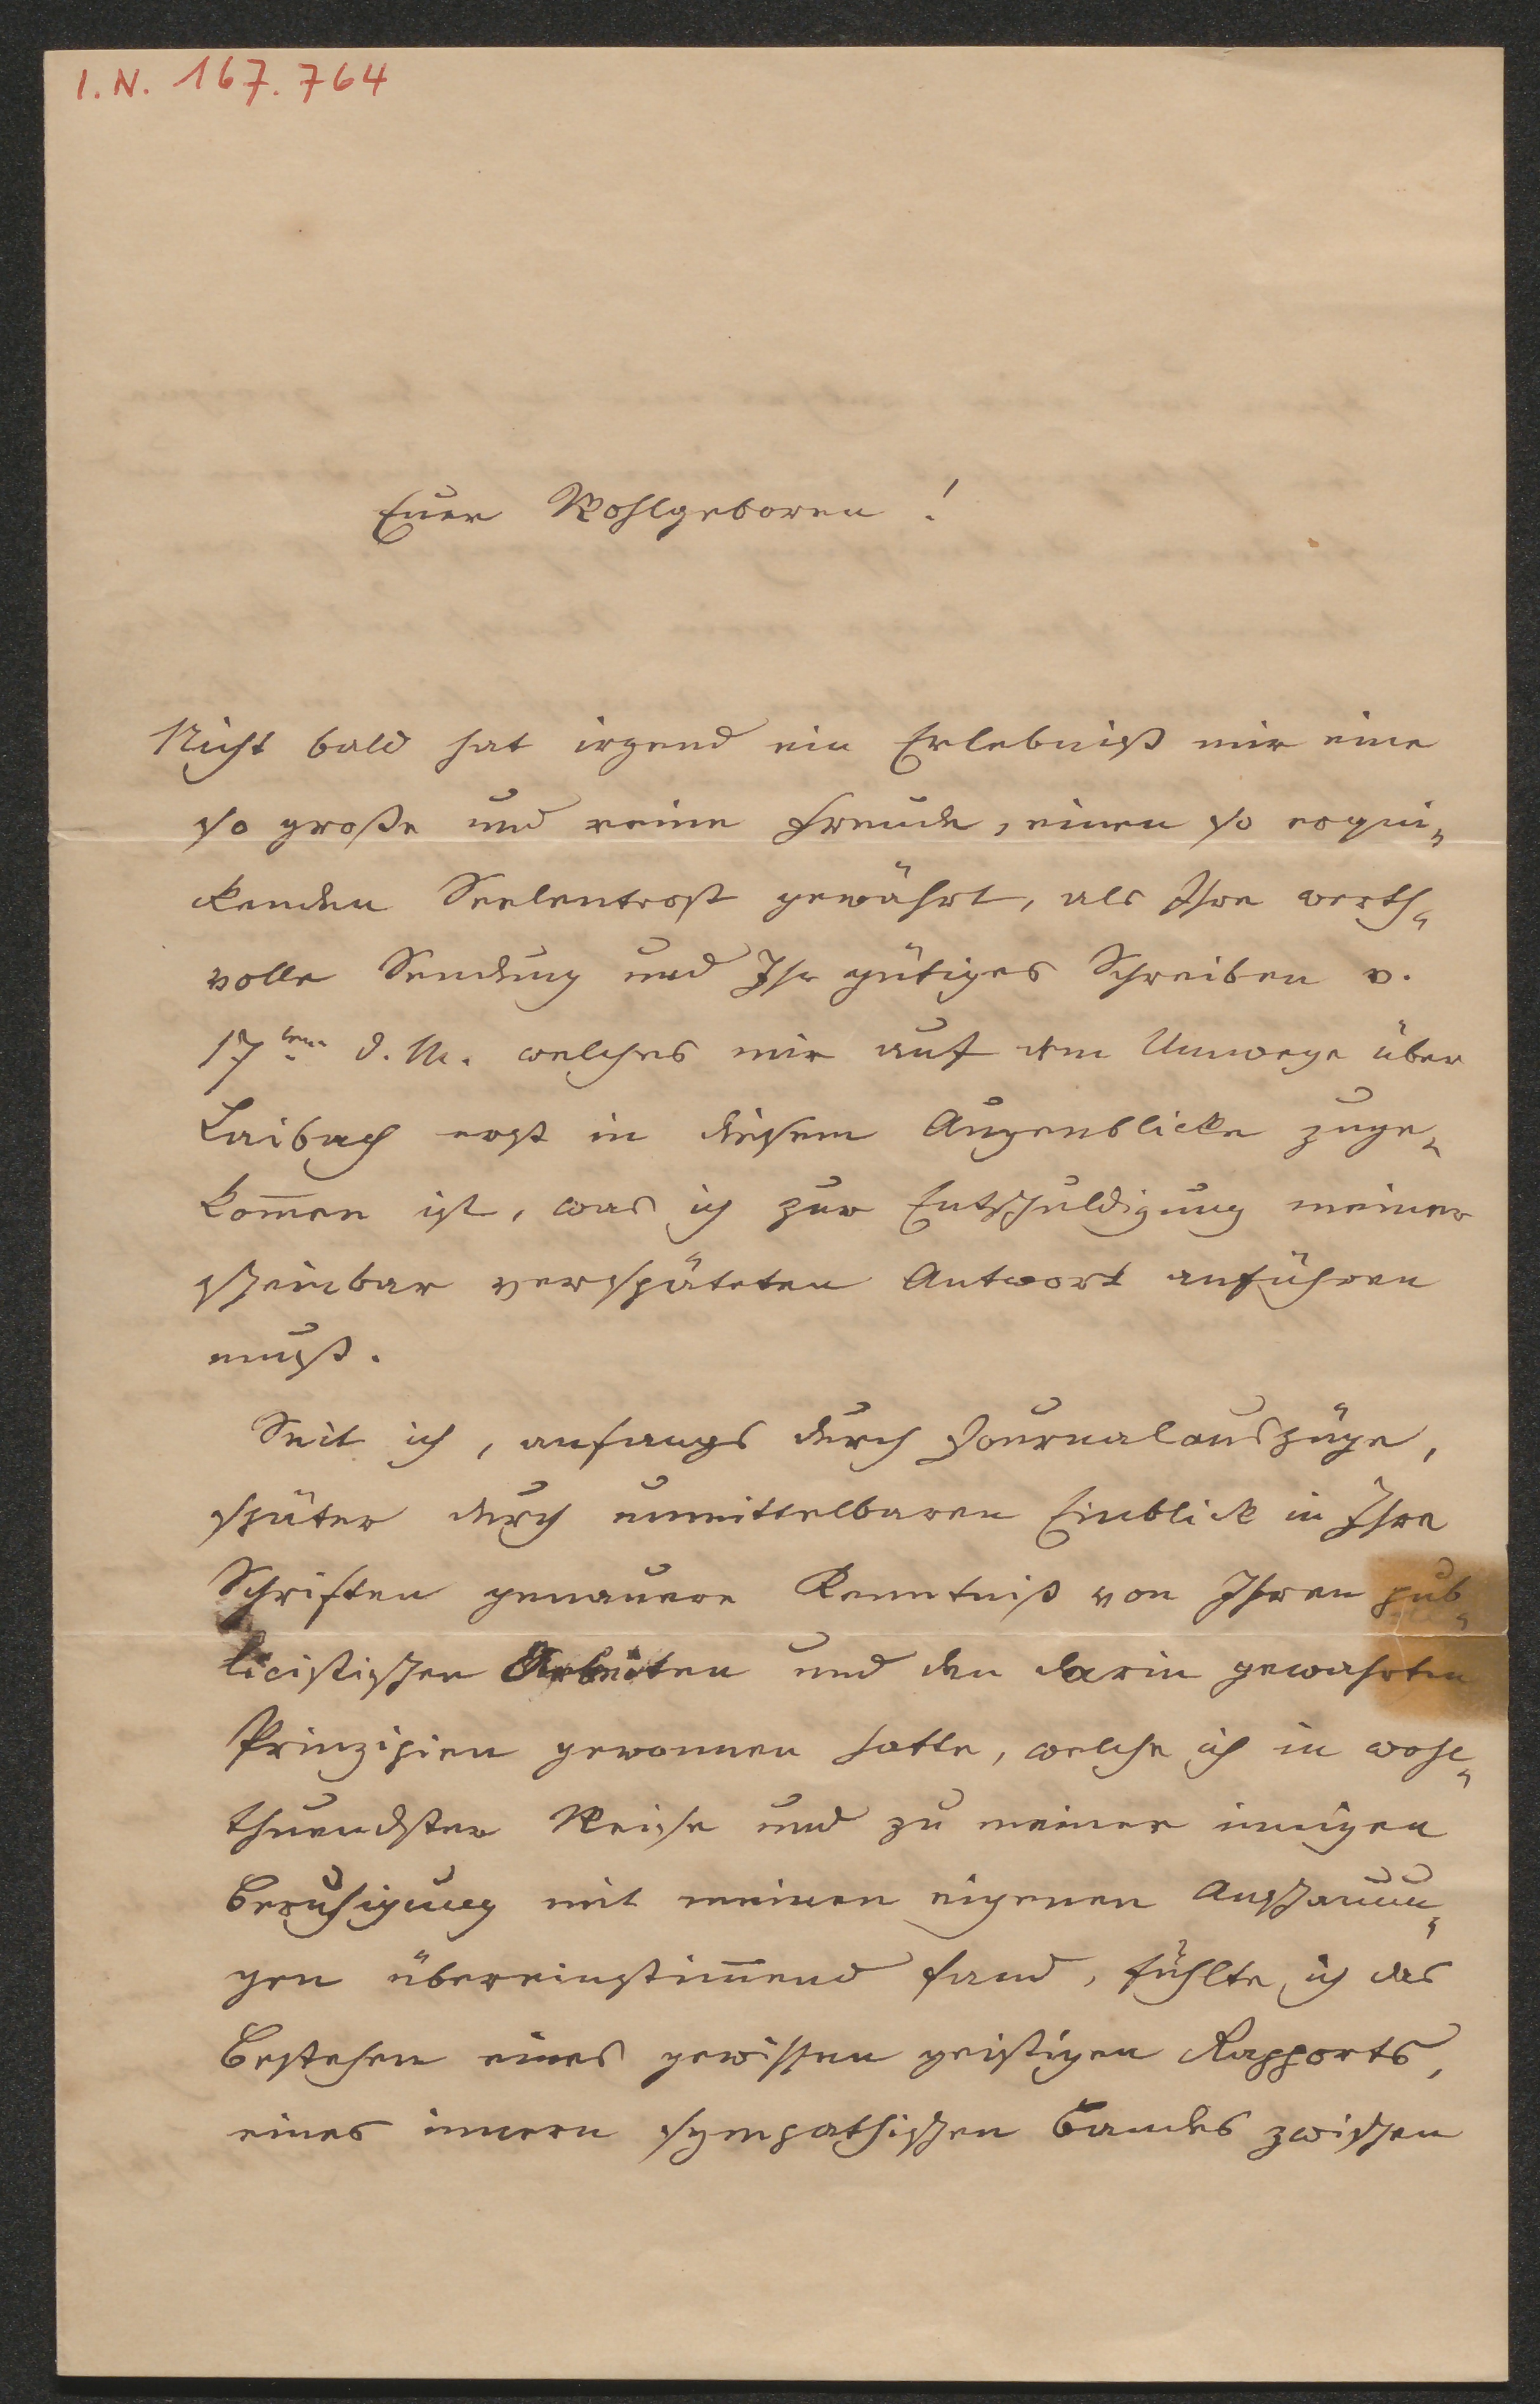 I.N. 167.764
Euer Wohlgeboren!
Nicht bald hat irgend ein Erlebniß mir eine
so große und reine Freude, einen so erqui-
kenden Seelentrost gewährt, als Ihre werth-
volle Sendung und Ihr gütiges Schreiben v.
17ten d. M. welches mir auf dem Umwege über
Laibach erst in diesem Augenblicke zuge-
kom̅en ist, was ich zur Entschuldigung meiner
scheinbar verspäteten Antwort anführen
muß.
Seit ich, anfangs durch Journalauszüge,
später durch unmittelbaren Einblick in Ihre
Schriften genauere Kenntniß von Ihren pub-
licistischen Arbeiten und den darin gewahrten
Prinzipien gewonnen hatte, welche ich in wohl-
thuendster Weise und zu meiner innigen
Beruhigung mit meinen eigenen Anschauun-
gen übereinstim̅end fand, fühlte ich das
Bestehen eines gewissen geistigen Rapports,
eines innern sympathischen Bandes zwischen